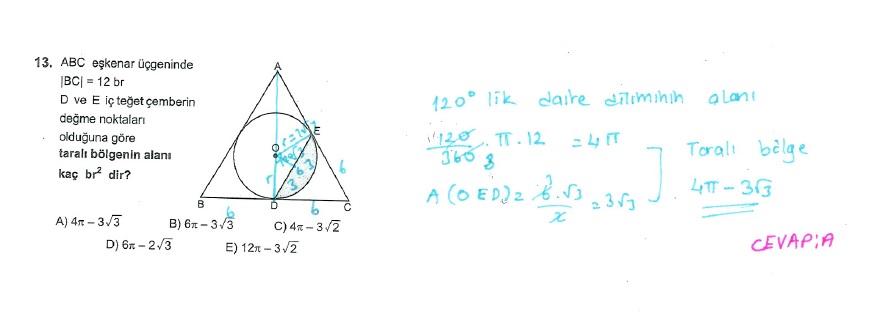 13. ABC eşkenar üçgeninde
|BC| = 12 br
D ve E iç teğet çemberin
değme noktaları
olduğuna göre
taralı bölgenin alanı
kaç br² dir?
A
E
O
r
6
3
6
3
B
D
C
6
6
A) 4π – 3√3 B) 6π – 3√3 C) 4π – 3√2
D) 6π – 2√3 E) 12π – 3√2
120° lik daire diliminin alanı
120/360 . π . 12 = 4π
3
A(OED) = 6.√3/2 = 3√3
3
Taralı bölge
4π – 3√3
CEVAP: A